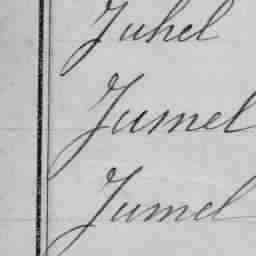 Juhel
Jumel
Jumel